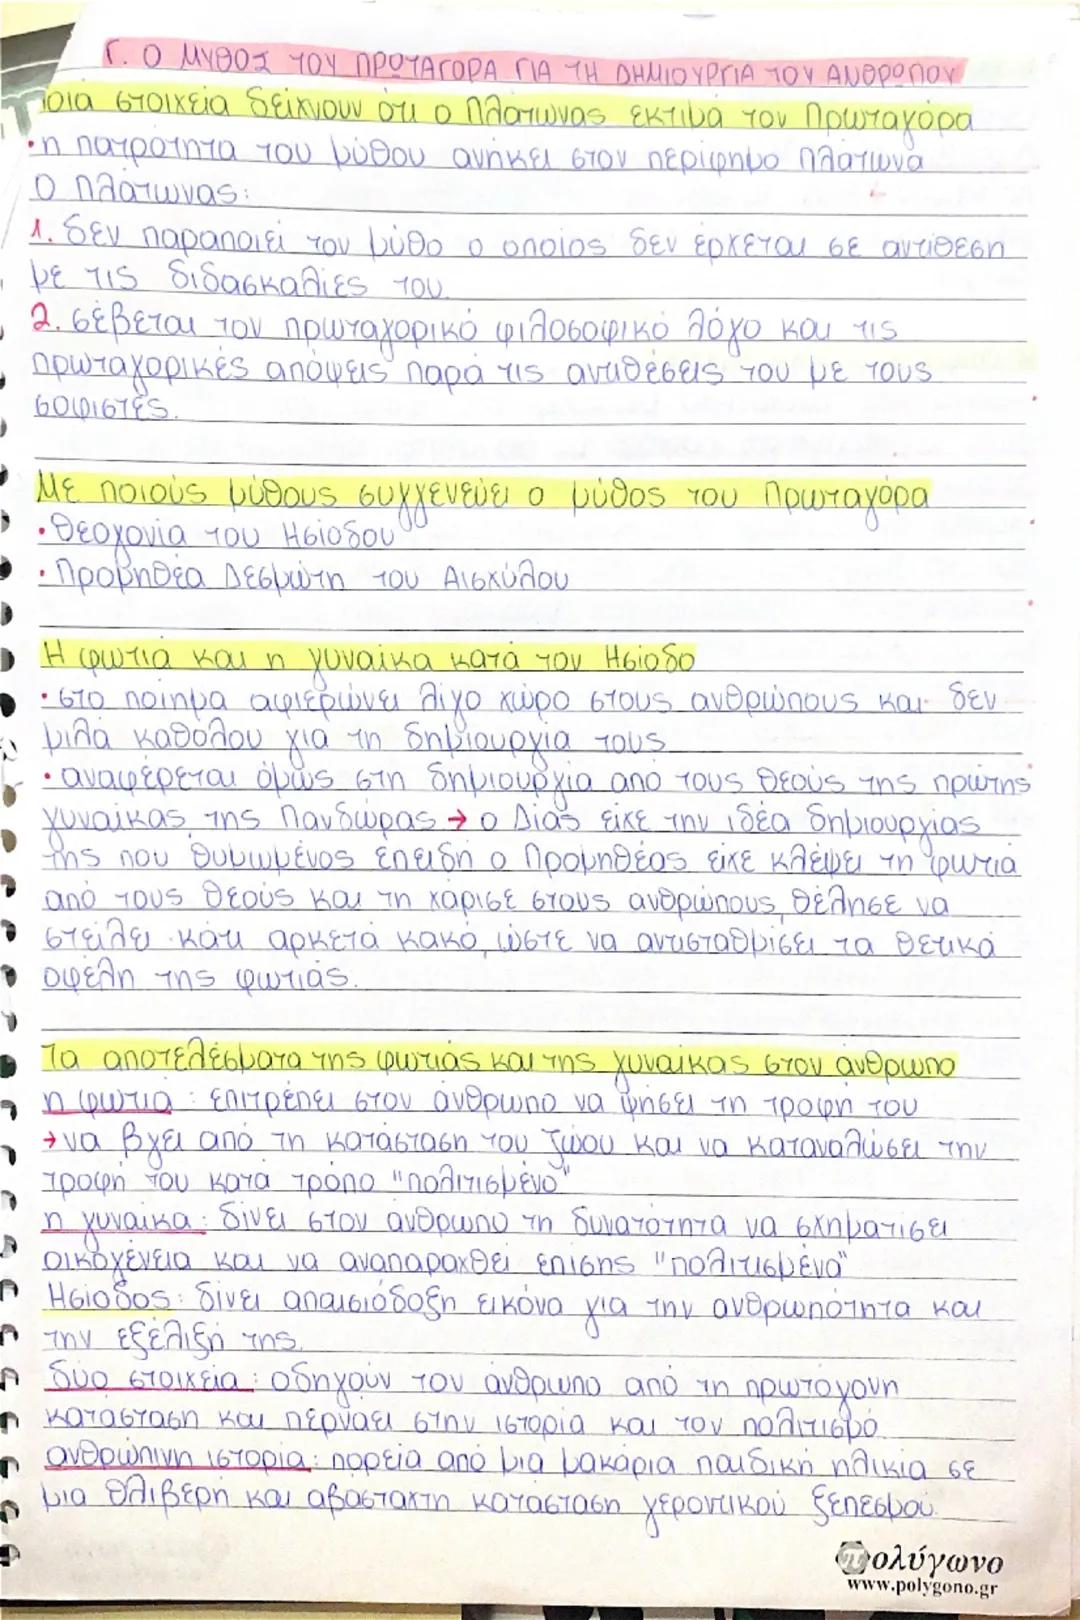 Γ. Ο ΜΥΘΟΣ ΤΟΥ ΠΡΩΤΑΓΟΡΑ ΓΙΑ ΤΗ ΔΗΜΙΟΥΡΓΙΑ ΤΟΥ ΑΝΘΡΩΠΟΥ
ποια στοιχεία δείχνουν ότι ο Πλάτωνας εκτιμά τον Πρωταγόρα
• η πατρότητα του μύθου ανήκει στον περίφημο Πλάτωνα
Ο Πλάτωνας:
1. δεν παραποιεί τον μύθο ο οποίος δεν έρχεται σε αντίθεση
με τις διδασκαλίες του.
2. σέβεται τον πρωταγορικό φιλοσοφικό λόγο και τις
πρωταγορικές απόψεις παρά τις αντιθέσεις του με τους
σοφιστές.
Με ποιούς μύθους συγγενεύει ο μύθος του Πρωταγόρα
• Θεογονία του Ησίοδου
• Προμηθέα Δεσμώτη του Αισχύλου
Η φωτιά και η γυναίκα κατά τον Ησίοδο
• στο ποίημα αφιερώνει λίγο χώρο στους ανθρώπους και δεν
μιλά καθόλου για τη δημιουργία τους
• αναφέρεται όμως στη δημιουργία από τους θεούς της πρώτης
γυναίκας, της Πανδώρας → ο Δίας είχε την ιδέα δημιουργίας
της που θυμωμένος επειδή ο Προμηθέας είχε κλέψει τη φωτιά
από τους θεούς και τη χάρισε στους ανθρώπους, θέλησε να
στείλει κάτι αρκετά κακό, ώστε να αντισταθμίσει τα θετικά
οφέλη της φωτιάς.
Τα αποτελέσματα της φωτιάς και της γυναίκας στον άνθρωπο
η φωτιά: επιτρέπει στον άνθρωπο να ψήσει τη τροφή του
→ να βγει από τη κατάσταση του ζώου και να καταναλώσει την
τροφή του κατά τρόπο "πολιτισμένο"
η γυναίκα: δίνει στον άνθρωπο τη δυνατότητα να σχηματίσει
οικογένεια και να αναπαραχθεί επίσης "πολιτισμένα"
Ησίοδος: δίνει απαισιόδοξη εικόνα για την ανθρωπότητα και
την εξέλιξή της.
δύο στοιχεία: οδηγούν τον άνθρωπο από τη πρωτόγονη
κατάσταση και περνάει στην ιστορία και τον πολιτισμό.
ανθρώπινη ιστορία: πορεία από μια μακάρια παιδική ηλικία σε
μια θλιβερή και αβάσταχτη κατάσταση γεροντικού ξεπεσμού.
πολύγωνο
www.polygono.gr